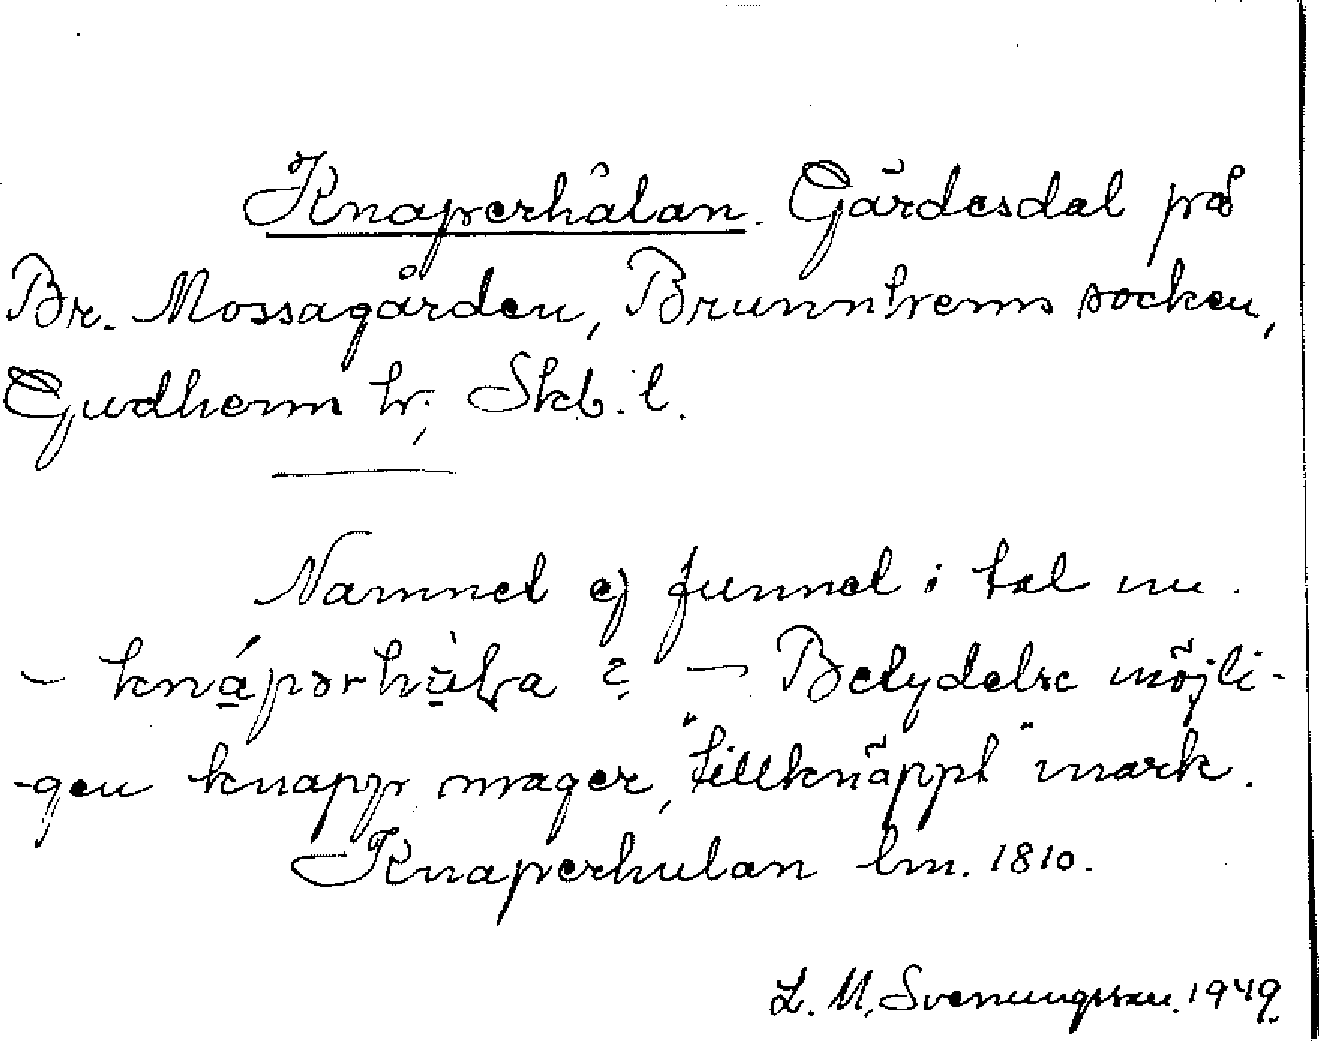 Knaperhålan. Gärdesdal på
Br. Mossagården, Brunnhems socken,
Gudhem hr, Skb. l.
Namnet ej funnet i tal nu.
- knápərhù̀la ? - Betydelse möjli-
-gen knapp, mager, "tillknäppt" mark.
Knaperhulan lm. 1810.
L. M. Svenungsson. 1949.